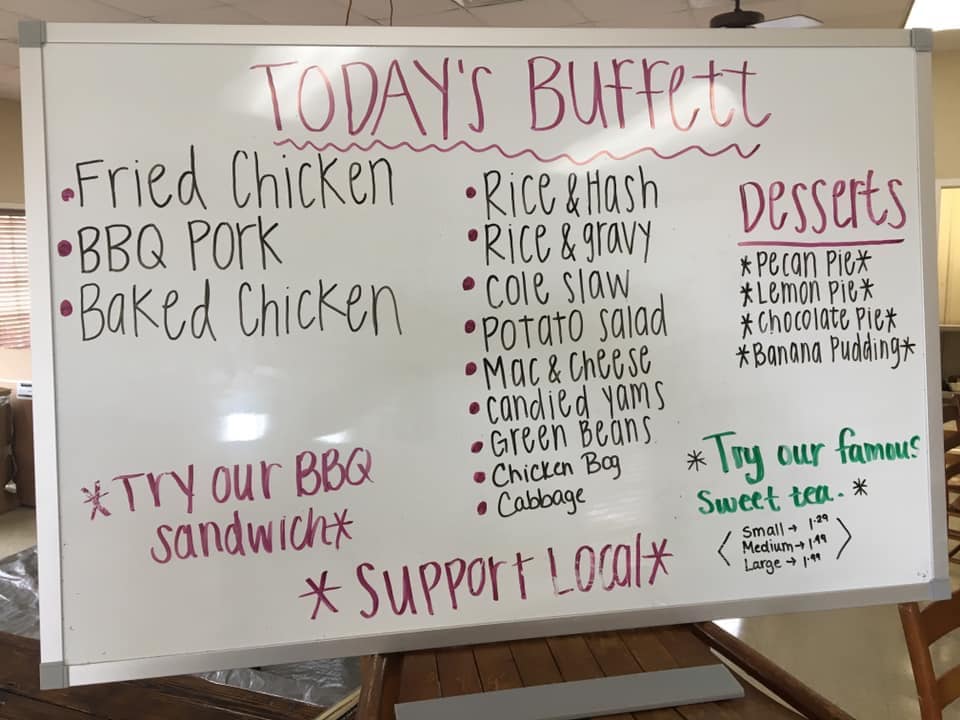 TODAY'S BUFFETT
• Fried Chicken
• BBQ PORK
• Baked Chicken
• Rice & Hash
• Rice & gravy
• Cole slaw
• Potato salad
• Mac & Cheese
• Candied yams
• Green Beans
• Chicken Bog
• Cabbage
Desserts
*Pecan Pie*
*Lemon Pie*
*Chocolate Pie*
*Banana Pudding*
*TRY our BBQ
sandwich*
*Try our famous
Sweet tea. *
Small → 1.29
Medium → 1.49
Large → 1.99
*Support Local*